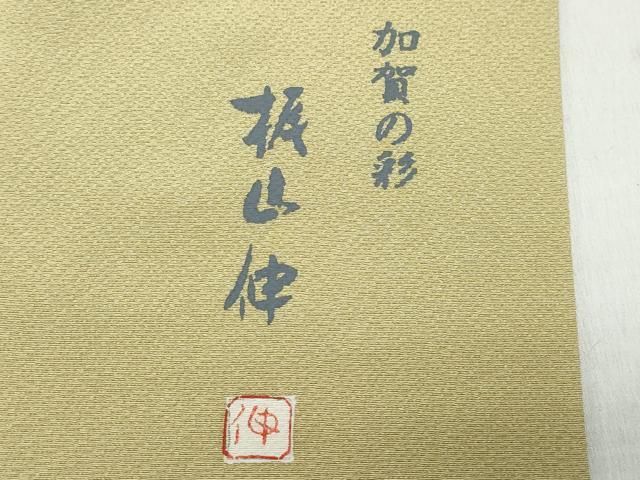 加賀の彩
梶山伸
伸